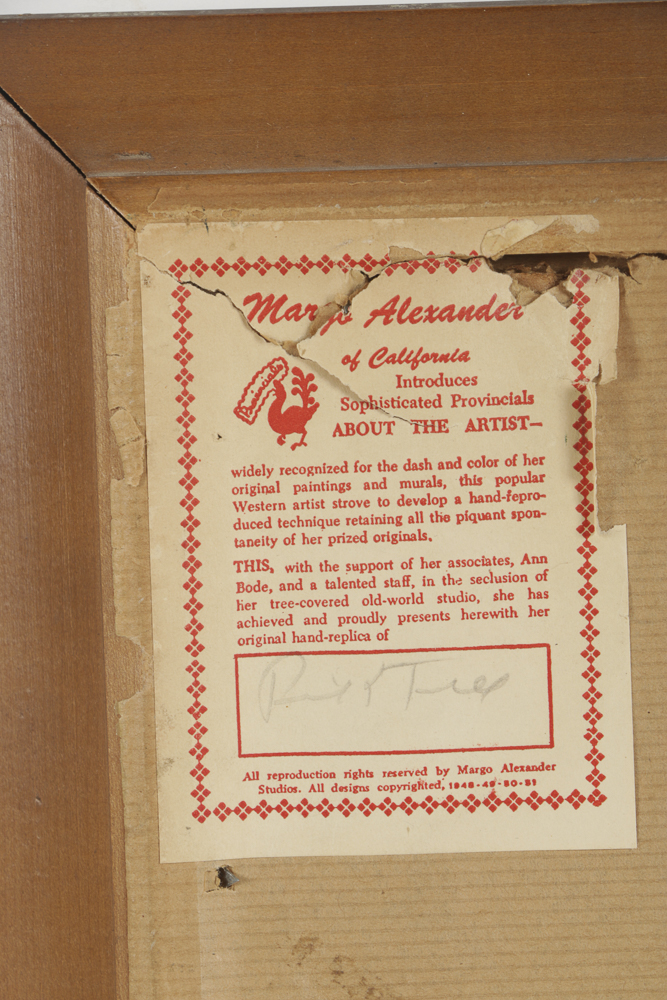 Margo Alexander
of California
Provincials
Introduces
Sophisticated Provincials
ABOUT THE ARTIST—
widely recognized for the dash and color of her
original paintings and murals, this popular
Western artist strove to develop a hand-fepro-
duced technique retaining all the piquant spon-
taneity of her prized originals.
THIS, with the support of her associates, Ann
Bode, and a talented staff, in the seclusion of
her tree-covered old-world studio, she has
achieved and proudly presents herewith her
original hand-replica of
Tree
All reproduction rights reserved by Margo Alexander
Studios. All designs copyrighted, 1948-49-50-51